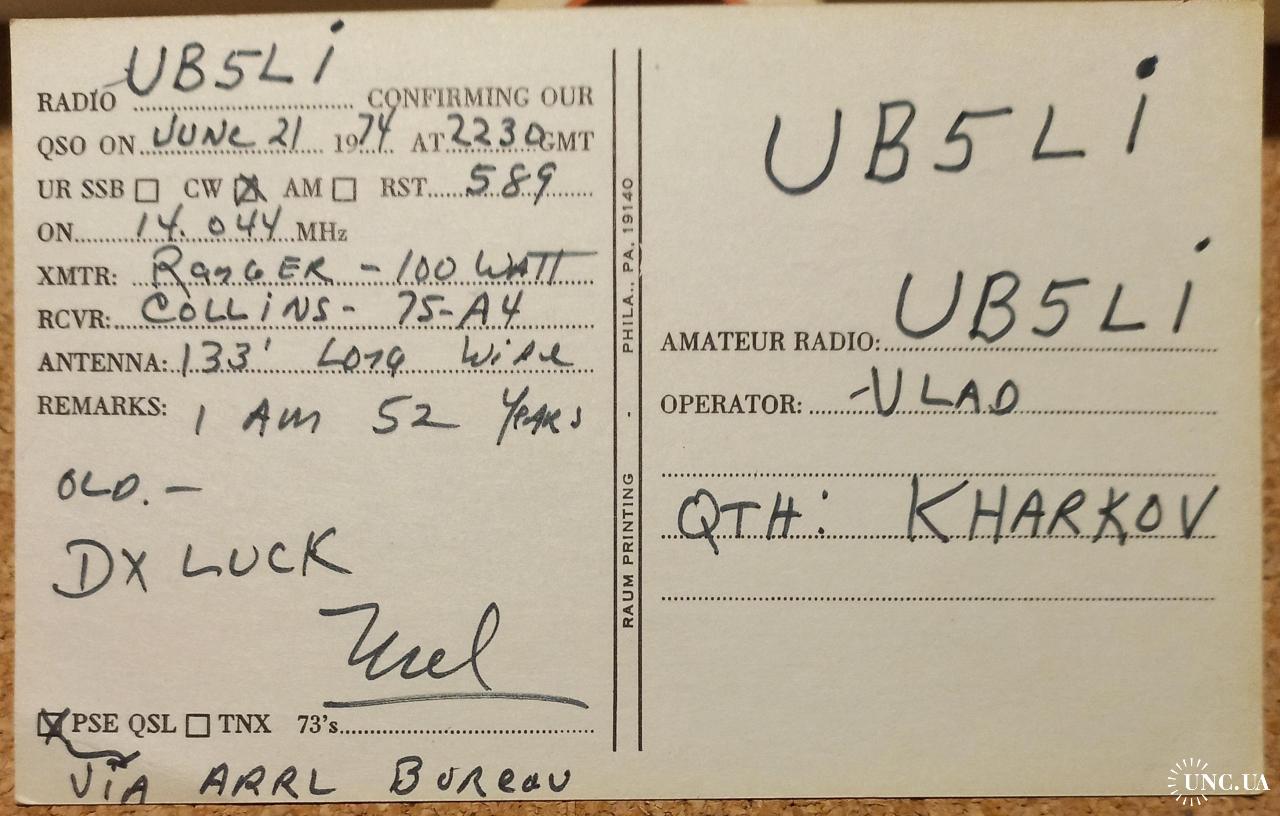 RADIO UB5Li CONFIRMING OUR
QSO ON JUNE 21 1974 AT 2230 GMT
UR SSB ☐ CW ☒ AM ☐ RST 589
ON 14.044 MHz
XMTR: RANGER - 100 WATT
RCVR: COLLiNS - 75-A4
ANTENNA: 133' Long Wire
REMARKS: I AM 52 YEARS
OLD. -
DX LUCK
Mel
☒ PSE QSL ☐ TNX 73's
ViA ARRL BUREAU
RAUM PRINTING - PHILA., PA. 19140
UB5Li
AMATEUR RADIO: UB5Li
OPERATOR: -VLAD
QTH: KHARKOV
UNC.UA